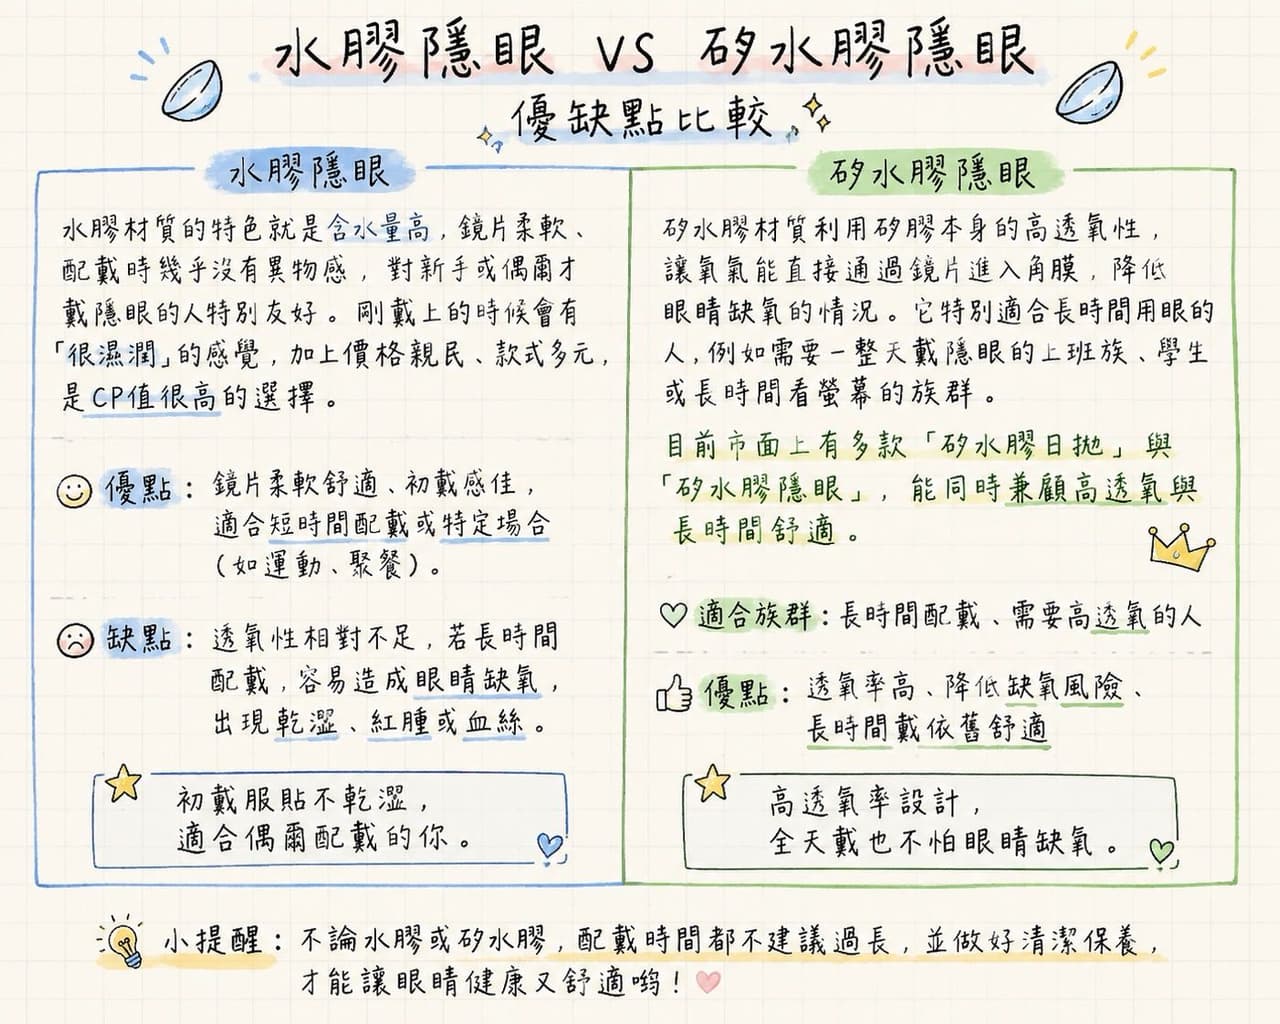 水膠隱眼 VS 矽水膠隱眼
優缺點比較
水膠隱眼
水膠材質的特色就是含水量高，鏡片柔軟、
配戴時幾乎沒有異物感，對新手或偶爾才
戴隱眼的人特別友好。剛戴上的時候會有
「很濕潤」的感覺，加上價格親民、款式多元，
是CP值很高的選擇。
優點：鏡片柔軟舒適、初戴感佳，
適合短時間配戴或特定場合
（如運動、聚餐）。
缺點：透氧性相對不足，若長時間
配戴，容易造成眼睛缺氧，
出現乾澀、紅腫或血絲。
初戴服貼不乾澀，
適合偶爾配戴的你。
矽水膠隱眼
矽水膠材質利用矽膠本身的高透氧性，
讓氧氣能直接通過鏡片進入角膜，降低
眼睛缺氧的情況。它特別適合長時間用眼的
人，例如需要一整天戴隱眼的上班族、學生
或長時間看螢幕的族群。
目前市面上有多款「矽水膠日拋」與
「矽水膠隱眼」，能同時兼顧高透氧與
長時間舒適。
適合族群：長時間配戴、需要高透氧的人
優點：透氧率高、降低缺氧風險、
長時間戴依舊舒適
高透氧率設計，
全天戴也不怕眼睛缺氧。
小提醒：不論水膠或矽水膠，配戴時間都不建議過長，並做好清潔保養，
才能讓眼睛健康又舒適喲！